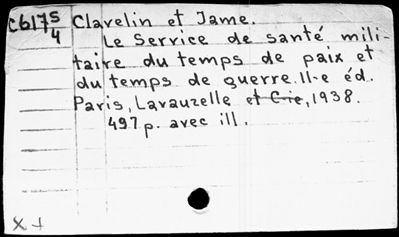 C617 5/4 Clavelin et Jame.
Le Service de santé mili-
taire du temps de paix et
du temps de guerre. II-e éd.
Paris, Lavauzelle et C-ie, 1938.
497 p. avec ill.